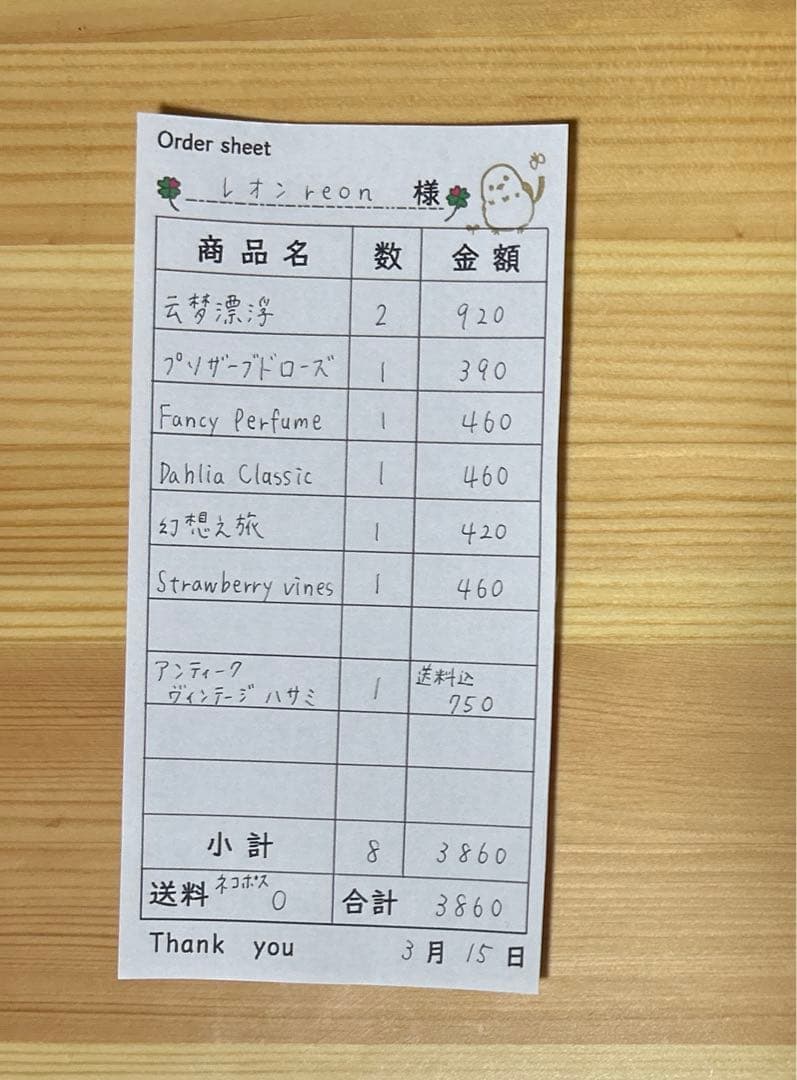 Order sheet
レオンreon 様
商品名 数 金額
云梦漂浮 2 920
プリザーブドローズ 1 390
Fancy Perfume 1 460
Dahlia Classic 1 460
幻想之旅 1 420
Strawberry vines 1 460
アンティーク
ヴィンテージ ハサミ 1 送料込 750
小計 8 3860
送料 ネコポス 0 合計 3860
Thank you 3月 15日